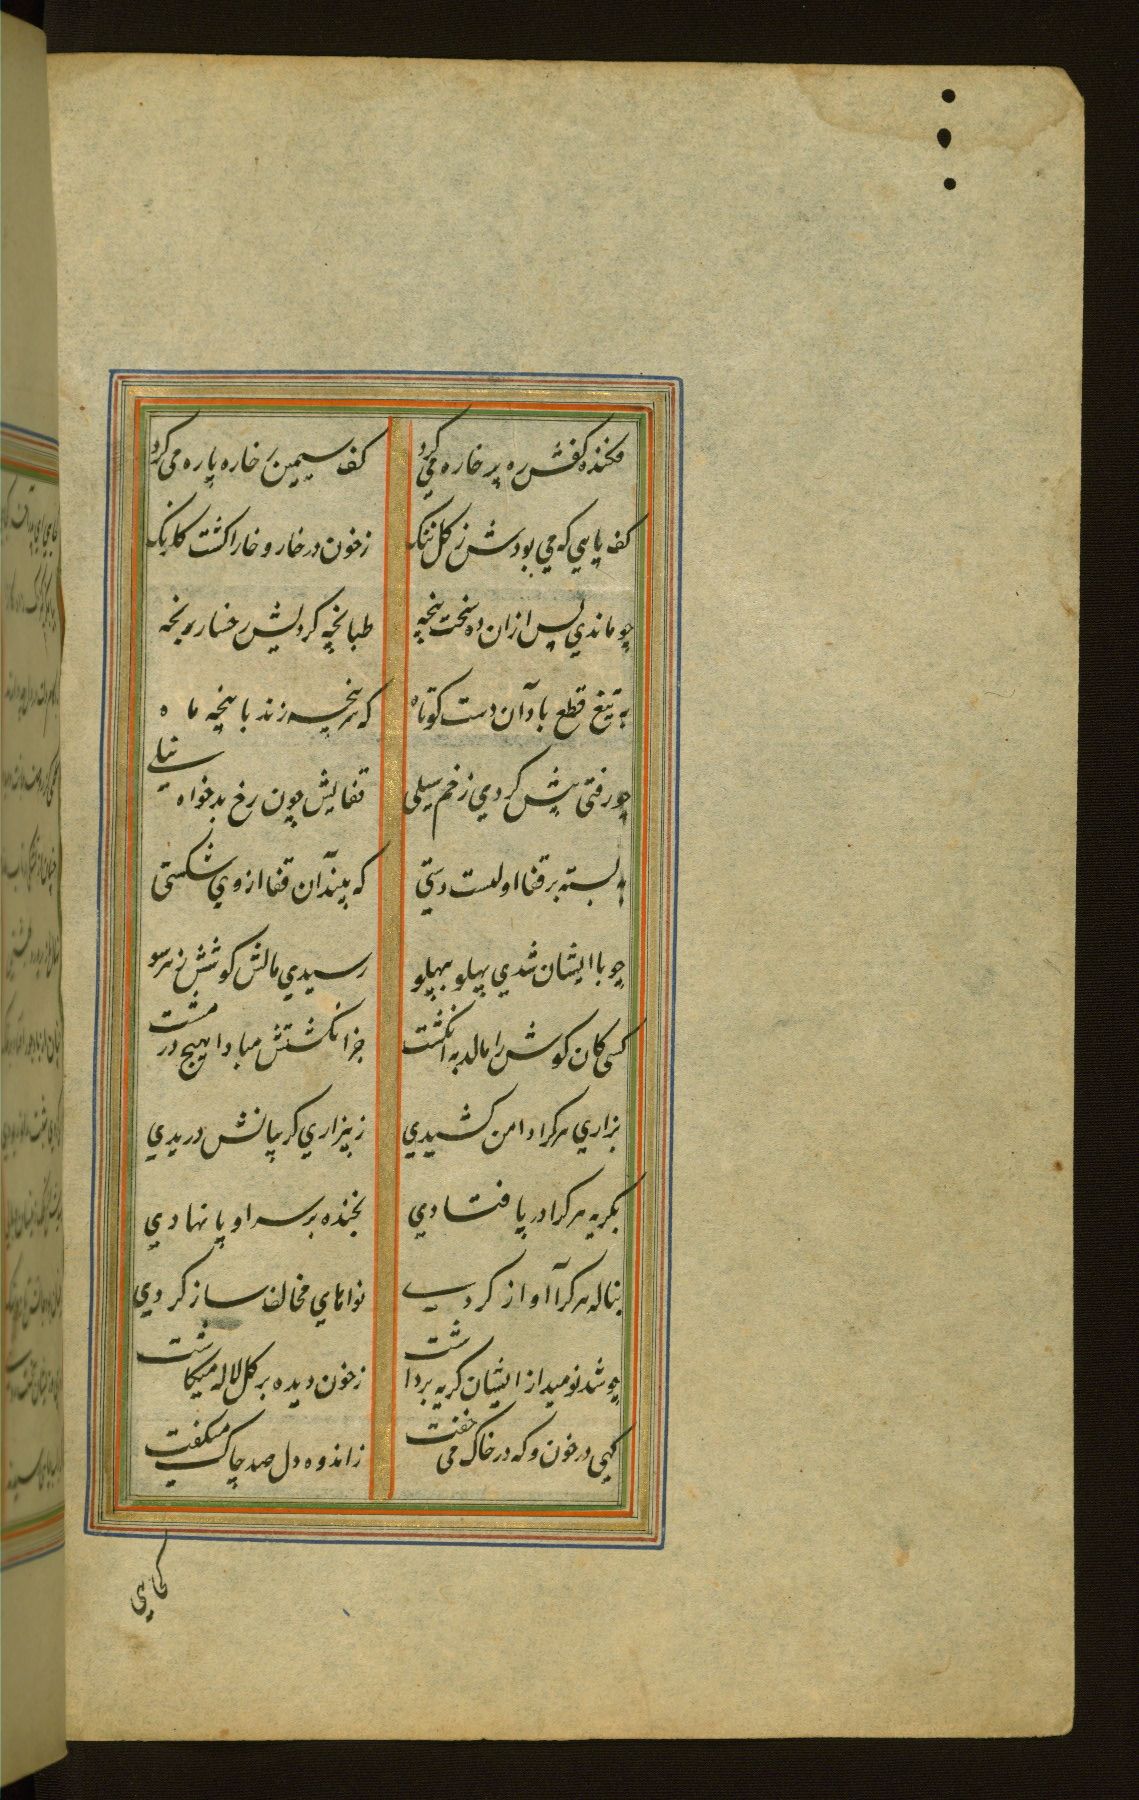 فکنده کفش ره پر خاره می کرد کف سیمین ز خاره پاره می کرد
کف پایی که می بودش ز کل ننک ز خون در خار و خارا کشت کلرنک
چو ماندی پس ازان ده سخت پنجه طبانچه کردیش رخسار رنجه
به تیغ قطع باد آن دست کوتاه که سرپنجه زند با پنجه ماه
چو رفتی پیش کردی زخم سیلی قفایش چون رخ بدخواه نیلی
بسته بر قفا اولیست دستی که بیند آن قفا از وی شکستی
چو با ایشان شدی پهلو بپهلو رسیدی مالش کوشش ز هر سو
کسی کان کوش را مالد به انکشت جز انکشتش مبادا هیچ در مشت
بزاری هر کرا دامن کشیدی ز بیزاری کریبانش دریدی
بکریه هر کرا در پا فتادی بخنده بر سر او پا نهادی
بناله هر کرا آواز کردی نواهای مخالف ساز کردی
چو شد نومید از ایشان کریه برداشت ز خون دیده بر کل لاله میکاشت
کهی در خون و که در خاک می خفت ز اندوه دل صد چاک میکفت
کجایی